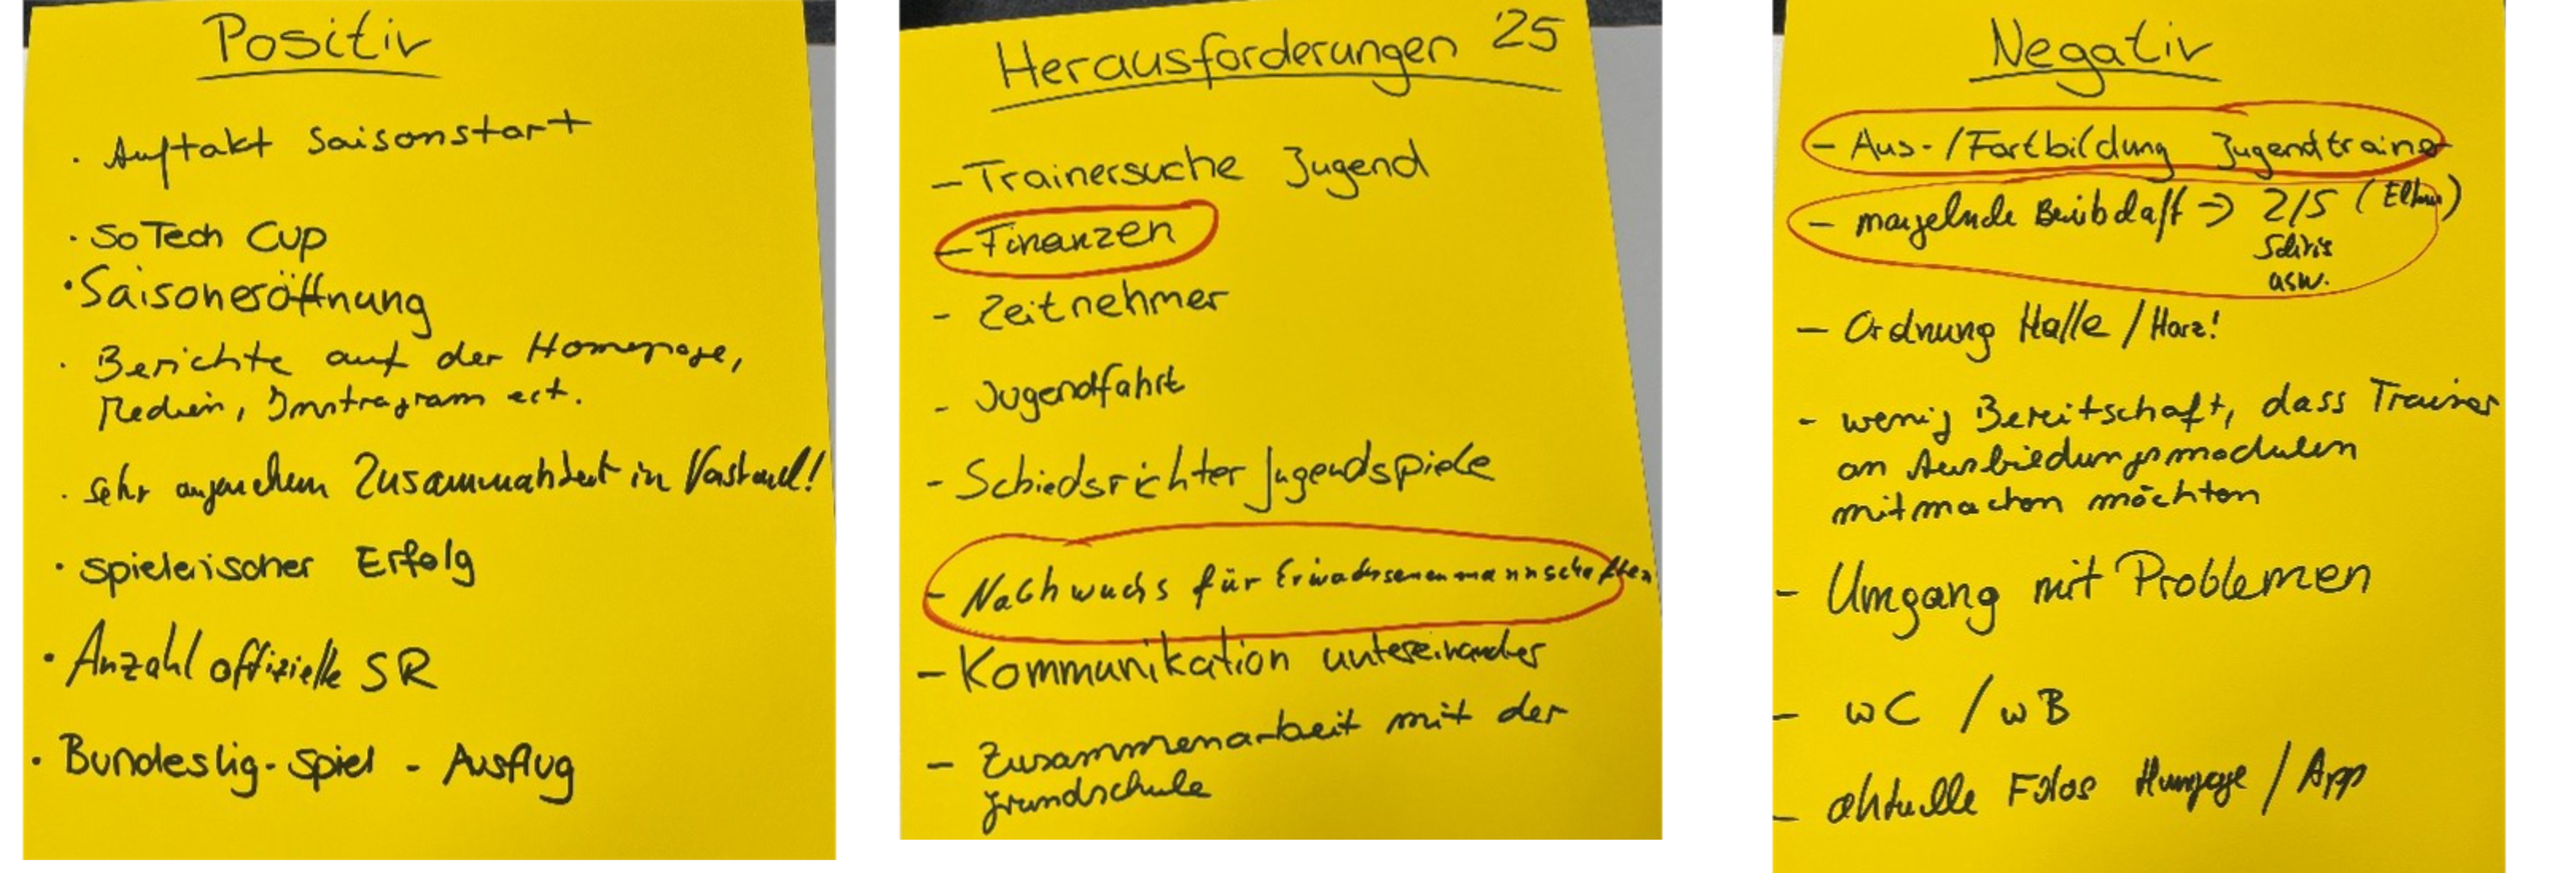 Positiv
· Auftakt Saisonstart
· SoTech Cup
· Saisoneröffnung
· Berichte auf der Homepage,
Medien, Instragram ect.
· sehr angenehem Zusammenarbeit in Vorstand!
· spielerischer Erfolg
· Anzahl offizielle SR
· Bundeslig-Spiel - Ausflug
Herausforderungen '25
- Trainersuche Jugend
- Finanzen
- Zeitnehmer
- Jugendfahrt
- Schiedsrichter Jugendspiele
- Nachwuchs für Erwachsenenmannschaften
- Kommunikation untereinander
- Zusammenarbeit mit der
grundschule
Negativ
- Aus-/Fortbildung Jugendtrainer
- mangelnde => 2/5 (Eltern)
Schiris
usw.
- Ordnung Halle / Harz!
- wenig Bereitschaft, dass Trainer
an Ausbildungsmodulen
mitmachen möchten
- Umgang mit Problemen
- wC / wB
- aktuelle Fotos / App